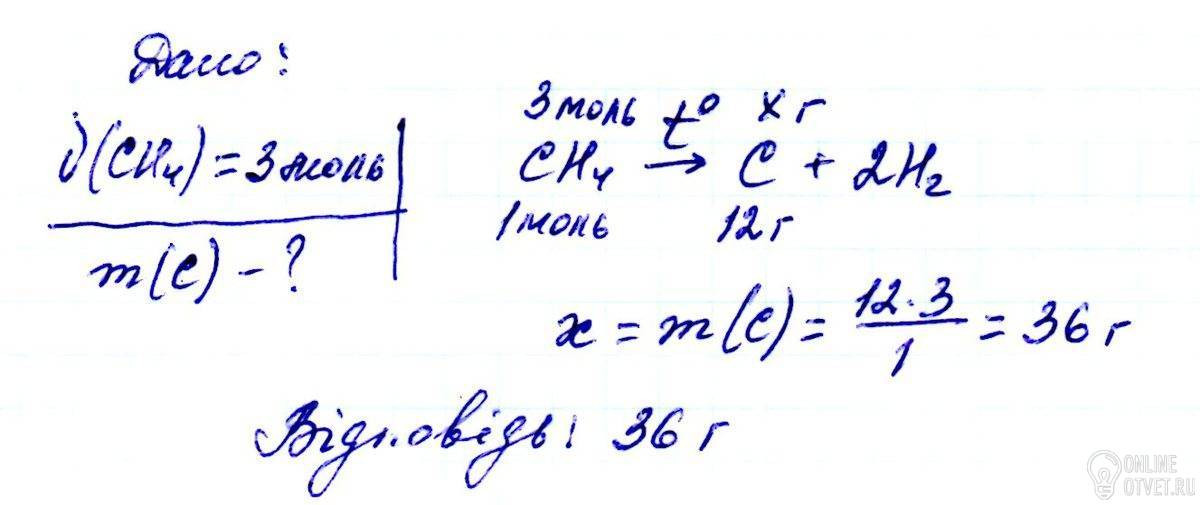 Дано:
ν(CH₄) = 3 моль
m(C) - ?
3 моль t° x г
CH₄ → C + 2H₂
1 моль 12 г
x = m(C) = 12·3/1 = 36 г
Відповідь: 36 г
ONLINE
OTVET.RU